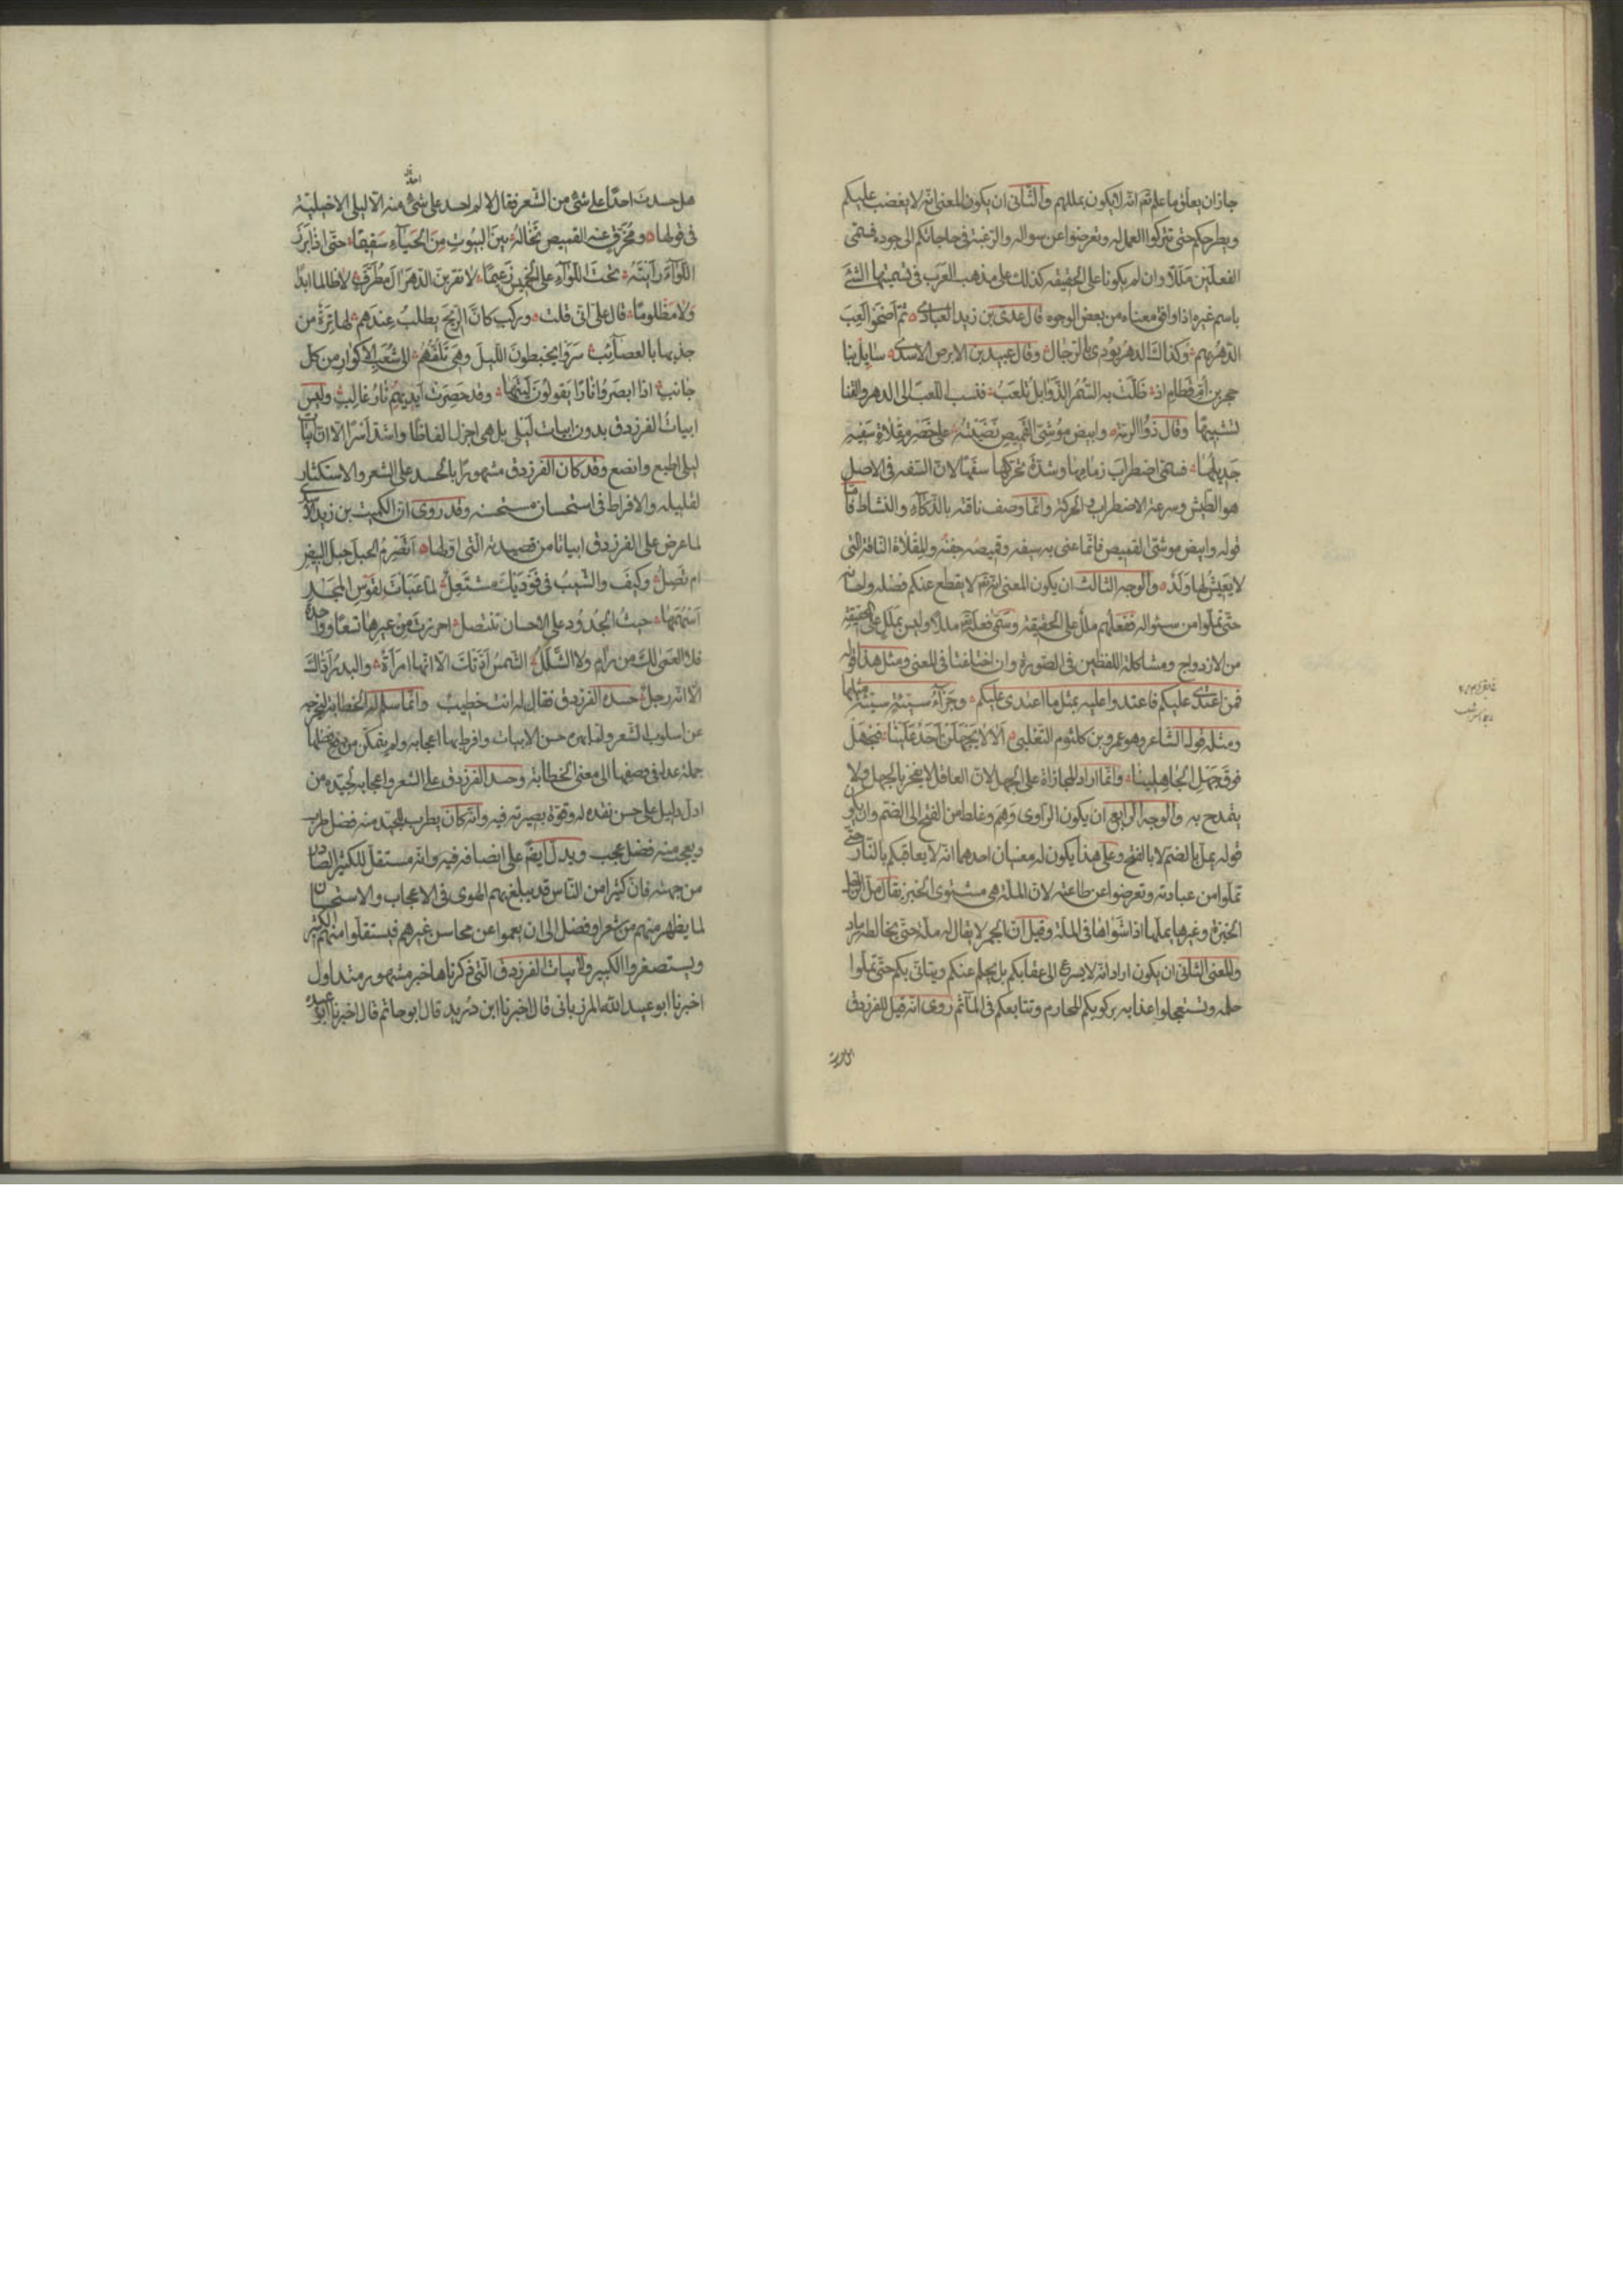 جاز ان يعلق ما علم تع انه لا يكون بمللهم والثانى ان يكون المعنى انه لا يغضب عليكم
ويطرحكم حتى تتركوا العمل له وتعرضوا عن سواله والرغبة فى حاجاتكم الى جوده فسمى
الفعلين مللا وان لم يكونا على الحقيقه كذلك على مذهب العرب فى تسميتها الشئ
باسم غيره اذا وافق معناه من بعض الوجوه قال عدى بن زيد العبادى ثم اضحوا لعب
الدهر بهم وكذاك الدهر يودى بالرجال وقال عبيد بن الابرص الاسدى سايل بنا
حجر بن ام قطام اذ ظلت به السمر الذوابل تلعب فنسب اللعب الى الدهر والقنا
تشبيها وقال ذو الرمة وابيض موشى القميص نصبته على خصر مقلاة سفيه
جديلها فسمى اضطراب زمامها وشدة تحركها سفها لان السفه فى الاصل
هو الطيش وسرعة الاضطراب والحركة وانما وصف ناقته بالذكاء والنشاط فاما
قوله وابيض موشى القميص فانما عنى به سيفه وقميصه جفنه والمقلاة الناقة التى
لا يعيش لها ولد والوجه الثالث ان يكون المعنى انه تع لا يقطع عنكم فضله واحسانه
حتى تملوا من سئواله ففعلهم ملل على الحقيقة وسمى فعله تع مللا وليس بملل على الحقيقة
من الازدواج ومشاكلة اللفظين فى الصورة وان اختلفتا فى المعنى ومثل هذا قوله
فمن اعتدى عليكم فاعتدوا عليه بمثل ما اعتدى عليكم وجزاء سيئة سيئة مثلها
ومثله قول الشاعر وهو عمرو بن كلثوم التغلبى الا لا يجهلن احد علينا فنجهل
فوق جهل الجاهلينا وانما اراد المجازاة على الجهل لان العاقل لا يفخر بالجهل ولا
يتمدح به والوجه الرابع ان يكون الراوى وهم وغلط من الفتح الى الضم وان يكون
قوله يمل بالضم لا بالفتح وعلى هذا يكون له معنيان احدهما انه لا يعاقبكم بالنار حتى
تملوا من عبادته وتعرضوا عن طاعته لان الملة هى مشتوى الخبز يقال مل الرجل
الخبزة وغيرها يملها اذا اشتواها فى الملة وقيل ان الجمر لا يقال له ملة حتى يخالطه رماد
والمعنى الثانى ان يكون اراد انه لا يسرع الى عقابكم بل يحلم عنكم ويتانى بكم حتى تملوا
حلمه وتستعجلوا عذابه بركوبكم المحارم وتتابعكم فى المآثم روى انه قيل للفرزدق
هل حسدت احدا على شئ من الشعر فقال لا لم احسد على شئ منه الا ليلى الاخيلية
فى قولها ومخرق عنه القميص تخاله بين البيوت من الحياء سقيما حتى اذا برز
اللواء رايته تحت اللواء على الخميس زعيما لا تقربن الدهر ال مطرف لا ظالما ابدا
ولا مظلوما قال على انى قلت وركب كان الريح يطلب عندهم لها ترة من
جذبها بالعصائب سروا يخبطون الليل وهى تلفهم الى شعب الاكوار من كل
جانب اذا ابصروا نارا يقولون ليتها وقد حصرت ايديهم نار غالب وليس
ابيات الفرزدق بدون ابيات ليلى بل هى اجزل الفاظا واشد اسرا الا ان ابيات
ليلى اطبع وانصع وقد كان الفرزدق مشهورا بالحسد على الشعر والاستكثار
لقليله والافراط فى استحسان مستحسنه وقد روى ان الكميت بن زيد الاسدى
لما عرض على الفرزدق ابياتا من قصيدته التى اولها اتصرم الحبل حبل البيض
ام تصل وكيف والشيب فى فوديك مشتعل لما عبات لقوس المجد
اسهمها حيث الجدود على الاحسان تنتضل احرزت من عشرها تسعا وواحدة
فلا العمى لك من رام ولا الشلل الشمس ادتك الا انها امراة والبدر اداك
الا انه رجل حسده الفرزدق فقال له انت خطيب وانما سلم له الخطابة ليخرجه
عن اسلوب الشعر ولما بهره حسن الابيات وافرط بها اعجابه ولم يتمكن من دفع فضلها
جملة عدل فى وصفها الى معنى الخطابة وحسد الفرزدق على الشعر واعجابه بجيده من
ادل دليل على حسن نقده له وقوة بصيرته فيه وانه كان يطرب للجيد منه فضل طرب
ويعجب منه فضل عجب ويدل ايضا على انصافه فيه وانه مستقل للكثير الصادر
من جهته فان كثيرا من الناس قد يبلغ بهم الهوى فى الاعجاب والاستحسان
لما يظهر منهم من شعر او فضل الى ان يعموا عن محاسن غيرهم فيستقلوا منهم الكثير
ويستصغروا الكبير ولابيات الفرزدق التى ذكرناها خبر مشهور متداول
اخبرنا ابو عبيد الله المرزبانى قال اخبرنا ابن دريد قال ابو حاتم قال اخبرنا ابو عبيدة